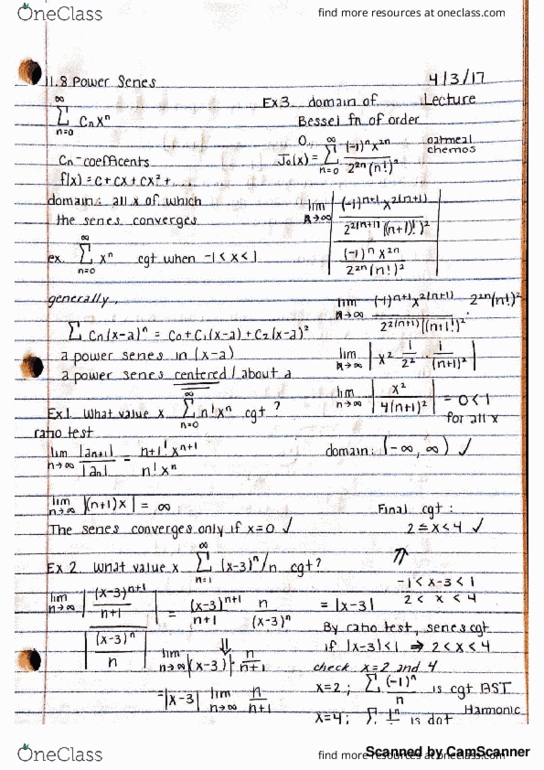 OneClass
find more resources at oneclass.com
11.8 Power Series
4/3/17
Lecture
∞
Σ Cnxⁿ
n=0
Cn - coefficents
f(x) = C + Cx + Cx² + ...
domain: all x of which
the series converges
ex. ∞ Σ n=0 xⁿ cgt when -1 < x < 1
generally,
Σ Cn(x-a)ⁿ = C₀ + C₁(x-a) + C₂(x-a)²
a power series in (x-a)
a power series centered / about a
Ex 1. What value x ∞ Σ n=0 n!xⁿ cgt ?
ratio test
lim n→∞ |an+1| / |an| = n+1! xⁿ⁺¹ / n! xⁿ
lim n→∞ |(n+1)x| = ∞
The series converges only if x=0 ✓
Ex 2. What value x ∞ Σ n=1 (x-3)ⁿ/n cgt?
lim n→∞ | (x-3)ⁿ⁺¹ / n+1 / (x-3)ⁿ / n | = (x-3)ⁿ⁺¹ / n+1 n / (x-3)ⁿ = |x-3|
⇓
lim n→∞ |(x-3)| · n / n+1
= |x-3| lim n→∞ n / n+1
Ex 3. domain of
Bessel fn of order
0,
J₀(x) = ∞ Σ n=0 (-1)ⁿ x²ⁿ / 2²ⁿ (n!)²
oatmeal
chemos
lim n→∞ | (-1)ⁿ⁺¹ x²⁽ⁿ⁺¹⁾ / 2²⁽ⁿ⁺¹⁾ [(n+1)!]² / (-1)ⁿ x²ⁿ / 2²ⁿ (n!)² |
lim n→∞ (-1)ⁿ⁺¹ x²⁽ⁿ⁺¹⁾ / 2²⁽ⁿ⁺¹⁾ [(n+1!)² · 2²ⁿ (n!)²
lim n→∞ | x² · 1 / 2² · 1 / (n+1)² |
lim n→∞ | x² / 4(n+1)² | = 0 < 1
for all x
domain: (-∞, ∞) ✓
Final cgt :
2 ≤ x < 4 ✓
⇑
-1 < x-3 < 1
2 < x < 4
By ratio test, series cgt
if |x-3| < 1 ⇒ 2 < x < 4
check x=2 and 4
x=2 ; Σ (-1)ⁿ / n is cgt AST
x=4 ; Σ 1 / n is dgt Harmonic
OneClass
find more resources at oneclass.com
Scanned by CamScanner